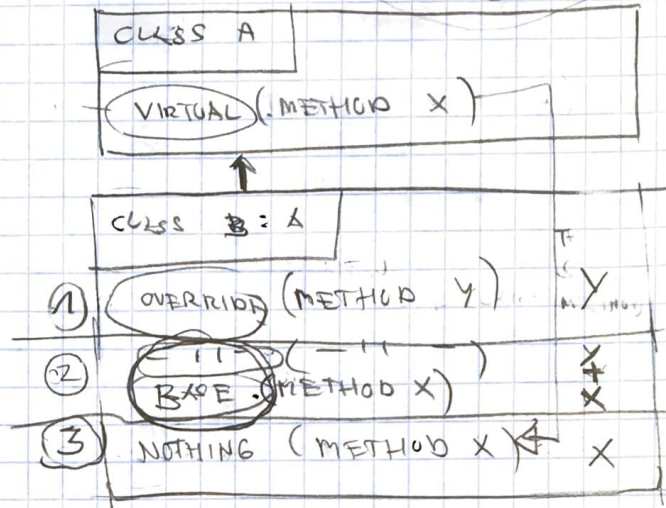 CLASS A
VIRTUAL (.METHOD X)
CLASS B : A
1 OVERRIDE (METHOD Y) Y
2 -11- (-11-) Y
+
BASE .(METHOD X) X
3 NOTHING (METHOD X) X